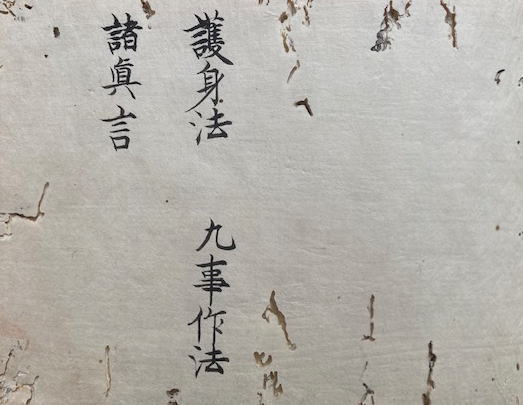 護身法　九事作法
諸眞言